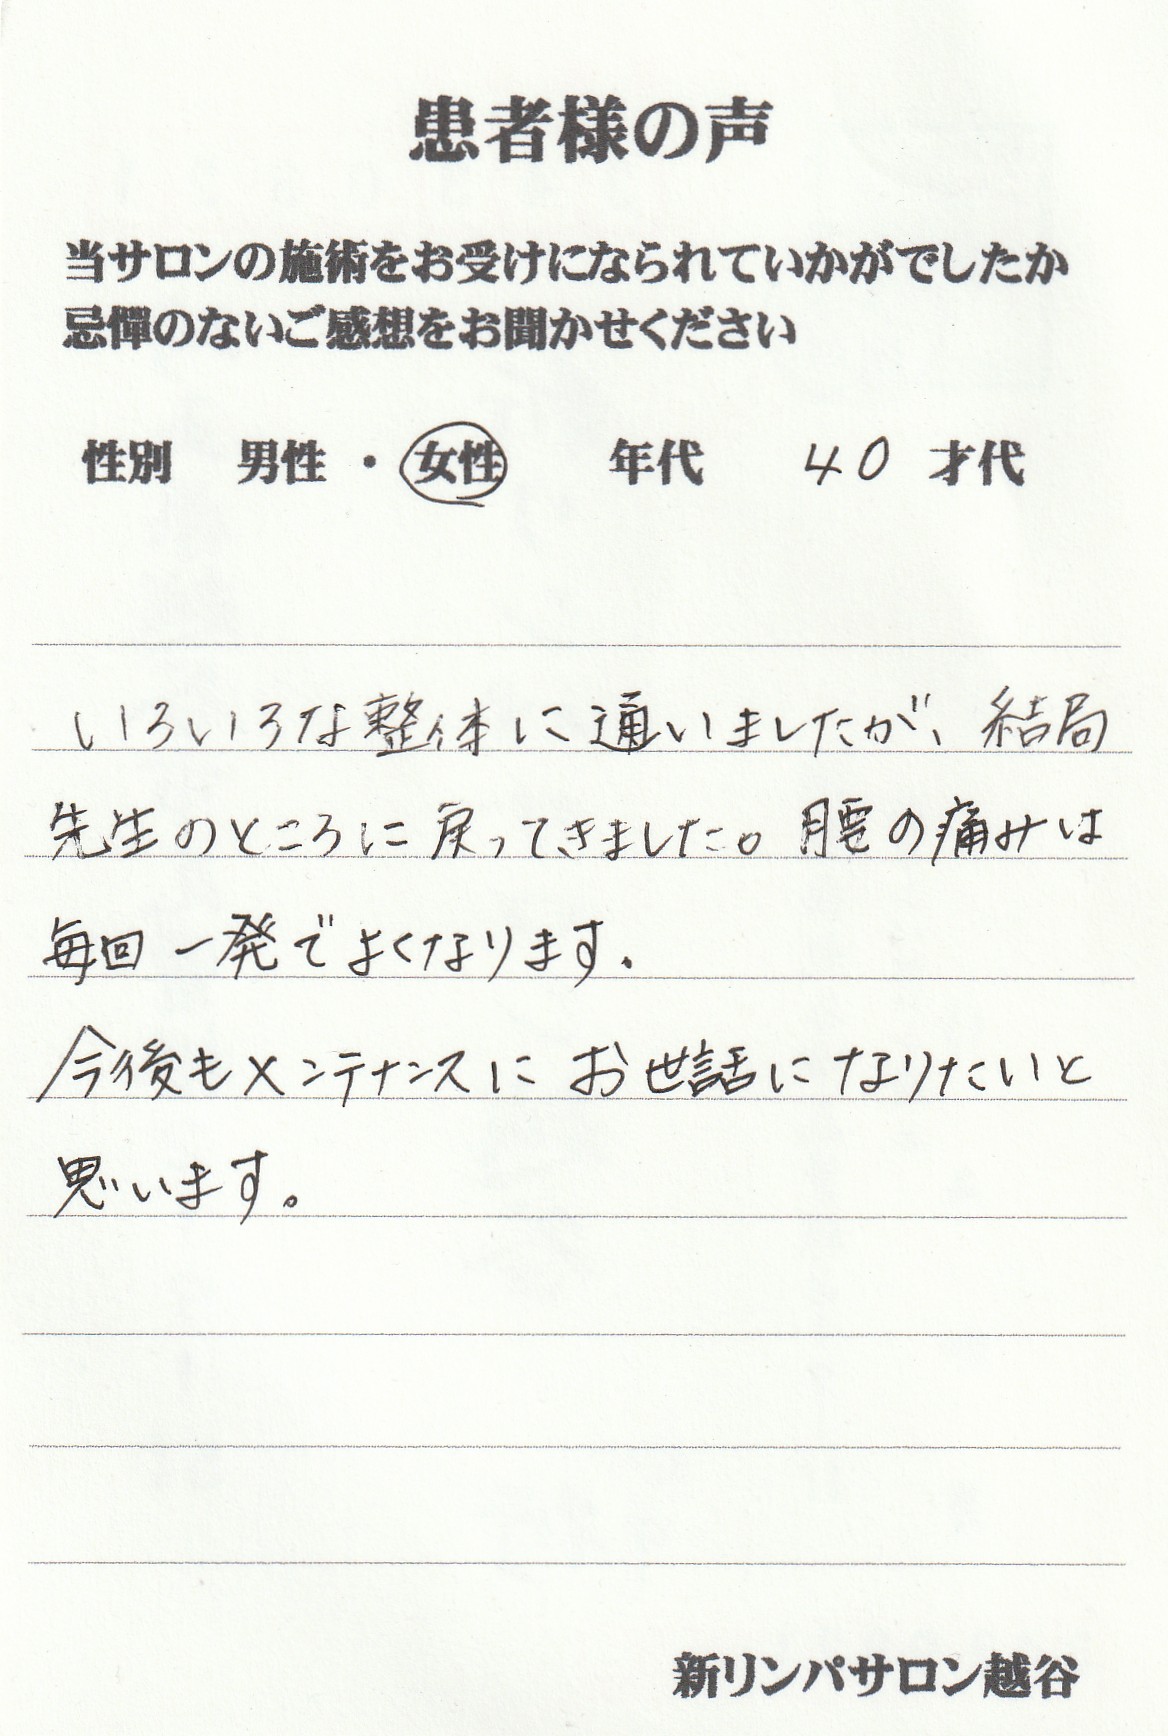 患者様の声
当サロンの施術をお受けになられていかがでしたか
忌憚のないご感想をお聞かせください
性別 男性 ・ 女性 年代 40 才代
いろいろな整体に通いましたが、結局
先生のところに戻ってきました。腰の痛みは
毎回一発でよくなります。
今後もメンテナンスにお世話になりたいと
思います。
新リンパサロン越谷